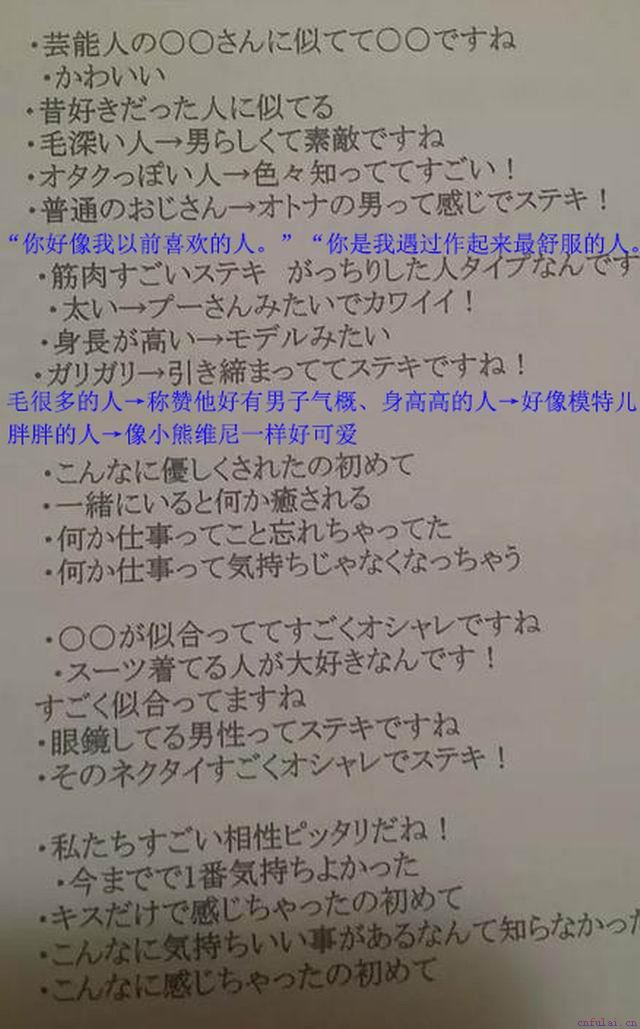 ・芸能人の〇〇さんに似てて〇〇ですね
・かわいい
・昔好きだった人に似てる
・毛深い人→男らしくて素敵ですね
・オタクっぽい人→色々知っててすごい！
・普通のおじさん→オトナの男って感じでステキ！
“你好像我以前喜欢的人。”“你是我遇过作起来最舒服的人。
・筋肉すごいステキ　がっちりした人タイプなんです
・太い→プーさんみたいでカワイイ！
・身長が高い→モデルみたい
・ガリガリ→引き締まっててステキですね！
毛很多的人→称赞他好有男子气概、身高高的人→好像模特儿
胖胖的人→像小熊维尼一样好可爱
・こんなに優しくされたの初めて
・一緒にいると何か癒される
・何か仕事ってこと忘れちゃってた
・何か仕事って気持ちじゃなくなっちゃう
・〇〇が似合っててすごくオシャレですね
・スーツ着てる人が大好きなんです！
すごく似合ってますね
・眼鏡してる男性ってステキですね
・そのネクタイすごくオシャレでステキ！
・私たちすごい相性ピッタリだね！
・今までで1番気持ちよかった
・キスだけで感じちゃったの初めて
・こんなに気持ちいい事があるなんて知らなかった
・こんなに感じちゃったの初めて
cnfulai.cn